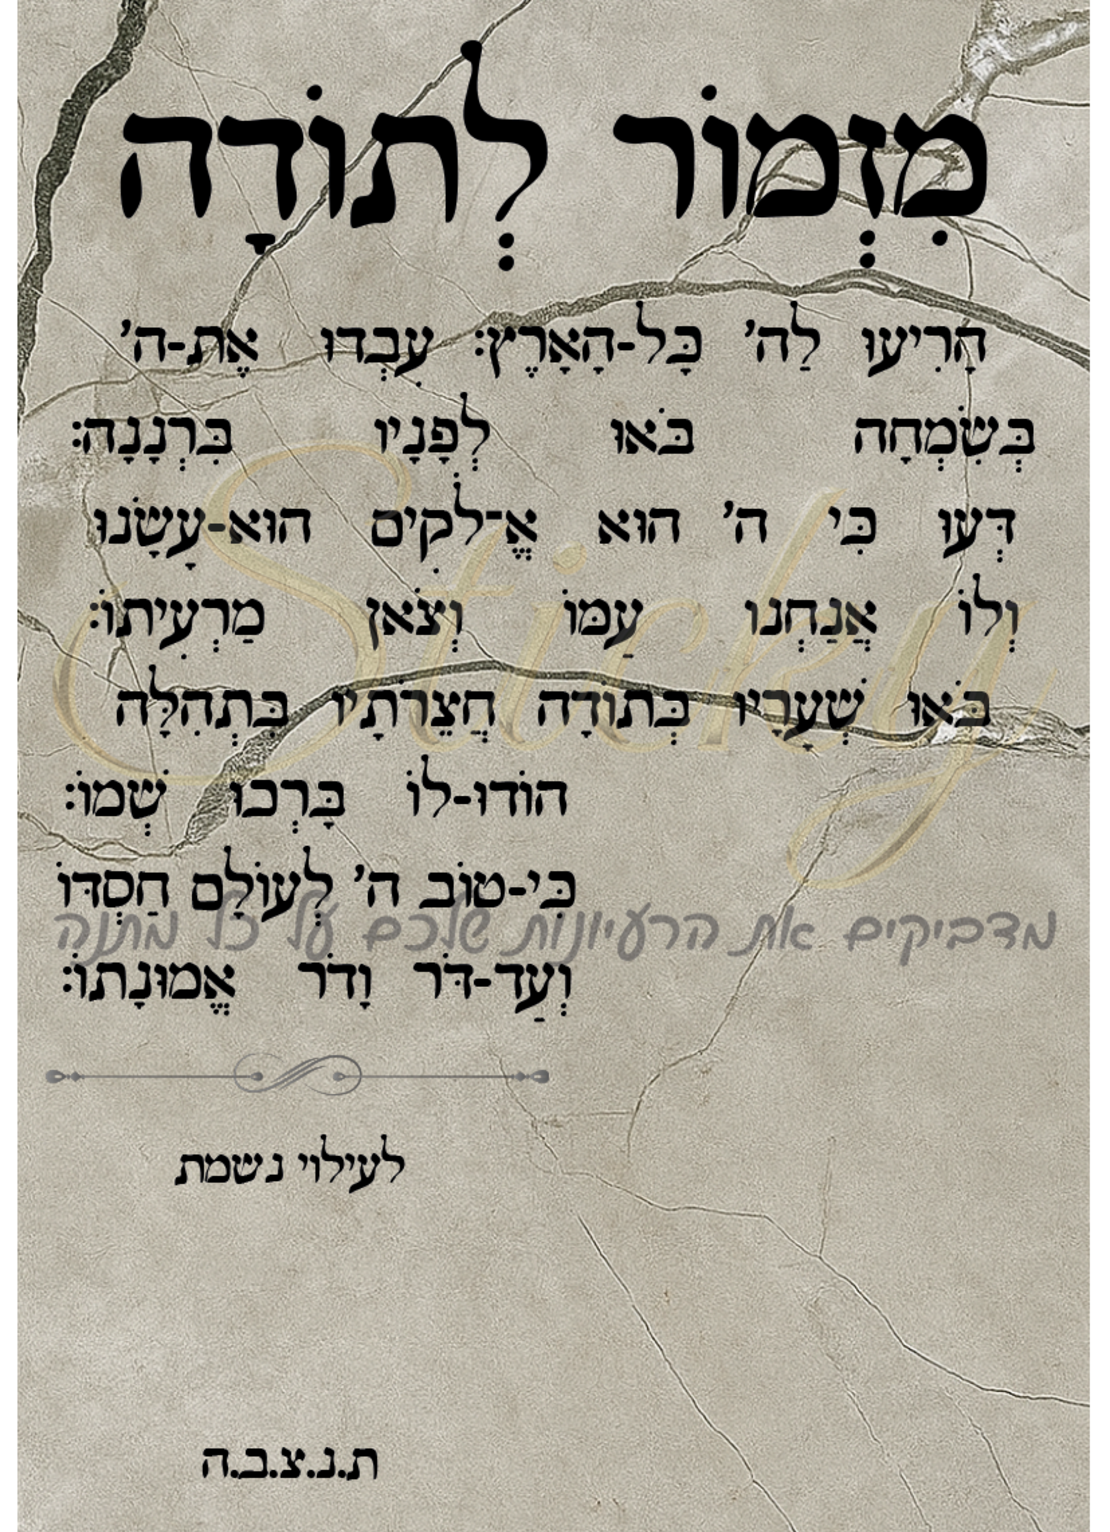 מִזְמוֹר לְתוֹדָה
הָרִיעוּ לַה' כָּל-הָאָרֶץ: עִבְדוּ אֶת-ה'
בְּשִׂמְחָה בֹּאוּ לְפָנָיו בִּרְנָנָה:
דְּעוּ כִּי ה' הוּא אֱ-לֹקִים הוּא-עָשָׂנוּ
וְלוֹ אֲנַחְנוּ עַמּוֹ וְצֹאן מַרְעִיתוֹ:
בֹּאוּ שְׁעָרָיו בְּתוֹדָה חֲצֵרֹתָיו בִּתְהִלָּה
הוֹדוּ-לוֹ בָּרְכוּ שְׁמוֹ:
כִּי-טוֹב ה' לְעוֹלָם חַסְדּוֹ
וְעַד-דֹּר וָדֹר אֱמוּנָתוֹ:
לעילוי נשמת
ת.נ.צ.ב.ה
Sticky
מדביקים את הרעיונות שלכם על כל מתנה